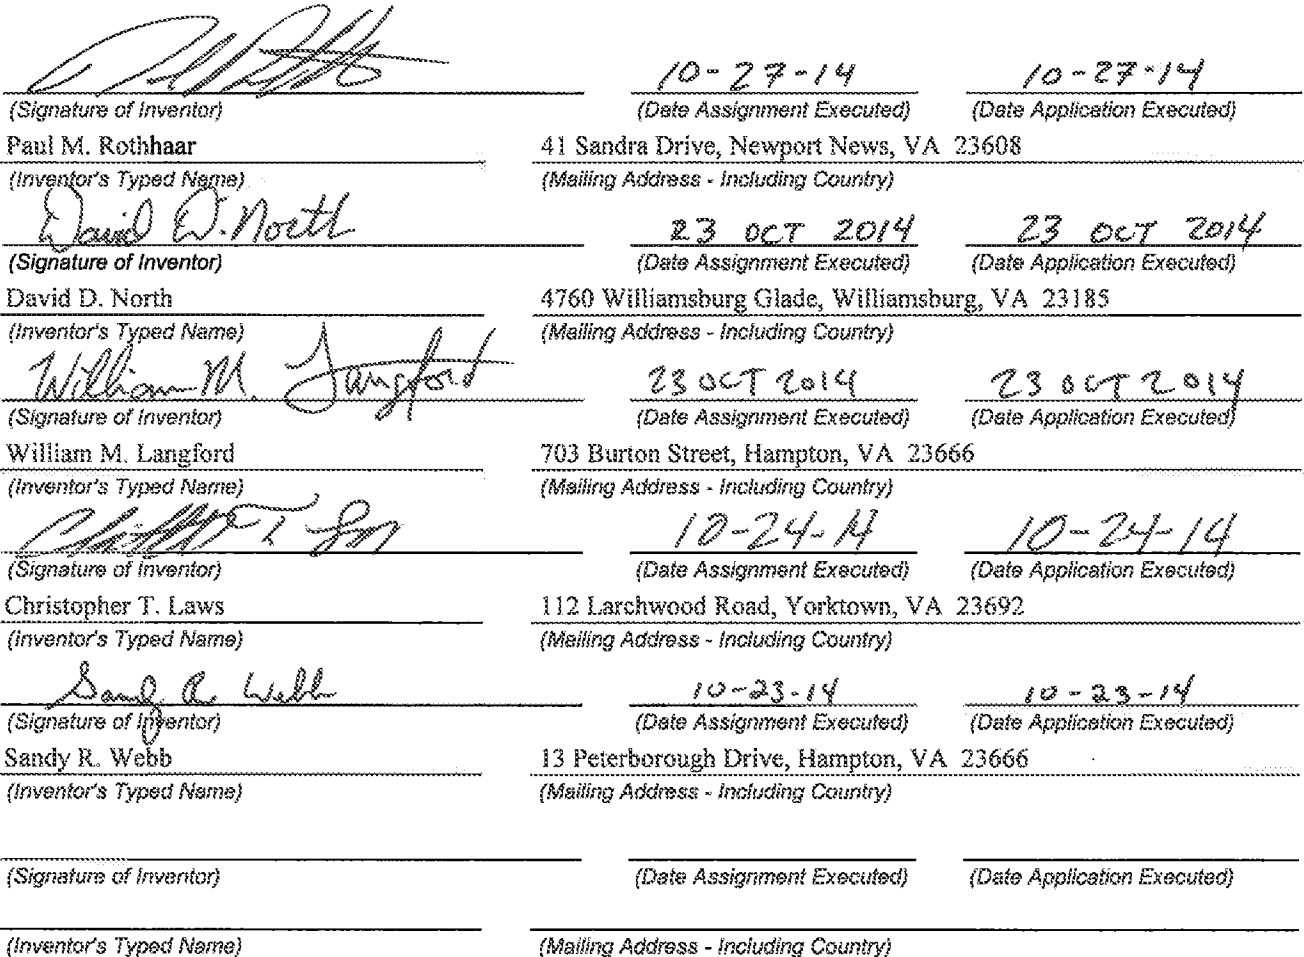 10-27-14 10-27-14
(Signature of Inventor) (Date Assignment Executed) (Date Application Executed)
Paul M. Rothhaar 41 Sandra Drive, Newport News, VA 23608
(Inventor's Typed Name) (Mailing Address - Including Country)
David D. North 23 OCT 2014 23 OCT 2014
(Signature of Inventor) (Date Assignment Executed) (Date Application Executed)
David D. North 4760 Williamsburg Glade, Williamsburg, VA 23185
(Inventor's Typed Name) (Mailing Address - Including Country)
William M. Langford 23 OCT 2014 23 OCT 2014
(Signature of Inventor) (Date Assignment Executed) (Date Application Executed)
William M. Langford 703 Burton Street, Hampton, VA 23666
(Inventor's Typed Name) (Mailing Address - Including Country)
10-24-14 10-24-14
(Signature of Inventor) (Date Assignment Executed) (Date Application Executed)
Christopher T. Laws 112 Larchwood Road, Yorktown, VA 23692
(Inventor's Typed Name) (Mailing Address - Including Country)
Sandy R Webb 10-23-14 10-23-14
(Signature of Inventor) (Date Assignment Executed) (Date Application Executed)
Sandy R. Webb 13 Peterborough Drive, Hampton, VA 23666
(Inventor's Typed Name) (Mailing Address - Including Country)
(Signature of Inventor) (Date Assignment Executed) (Date Application Executed)
(Inventor's Typed Name) (Mailing Address - Including Country)